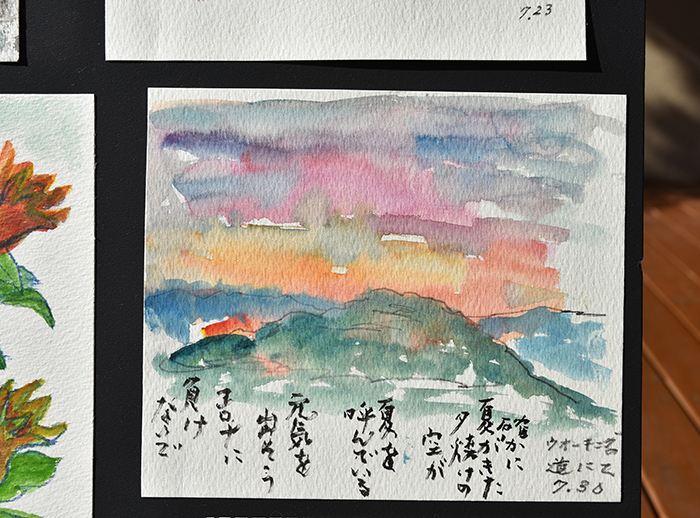 7.23
確かに
夏がきた
夕焼けの
空が
夏を
呼んでいる
元気を
出そう
コロナに
負け
ないで
ウオーキング
道にて
7.30